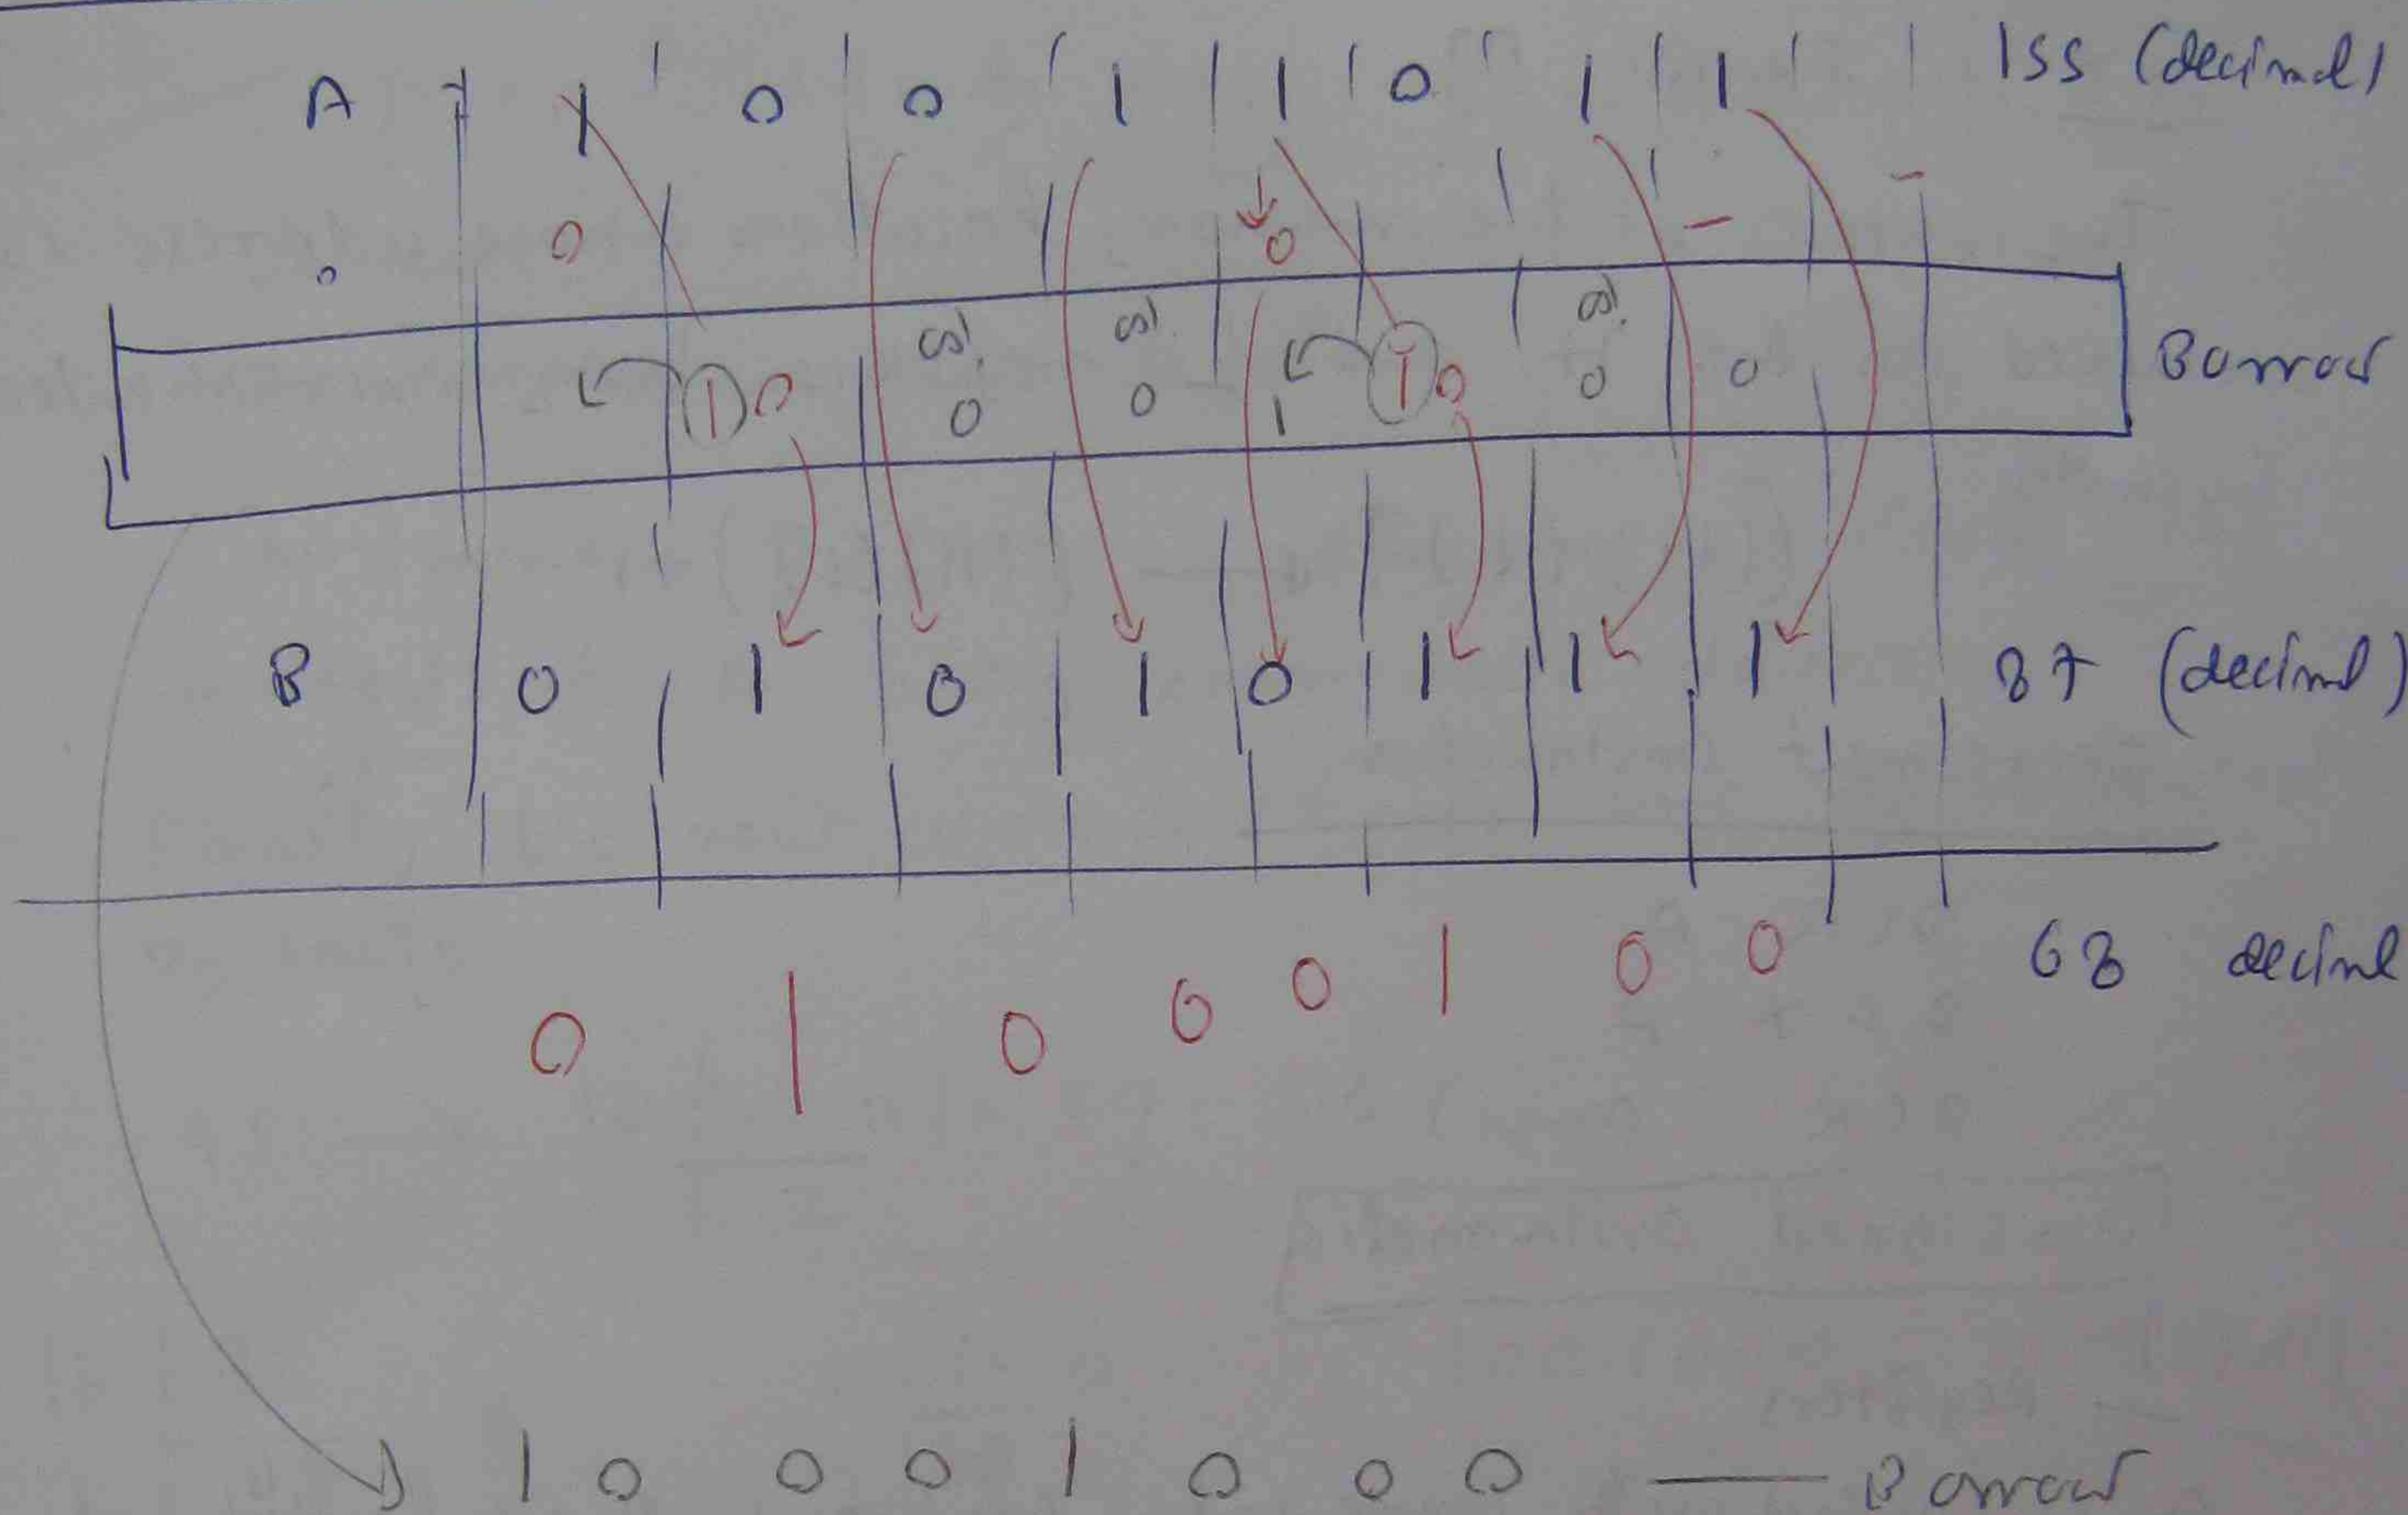 A 1 0 0 1 1 0 1 1 155 (decimal)
0 0 -  -
0 0 0
1 0 0 0 1 1 0 0 0 Borrow
B 0 1 0 1 0 1 1 1 87 (decimal)
0 1 0 0 0 1 0 0 68 decimal
1 0 0 0 1 0 0 0 — Borrow